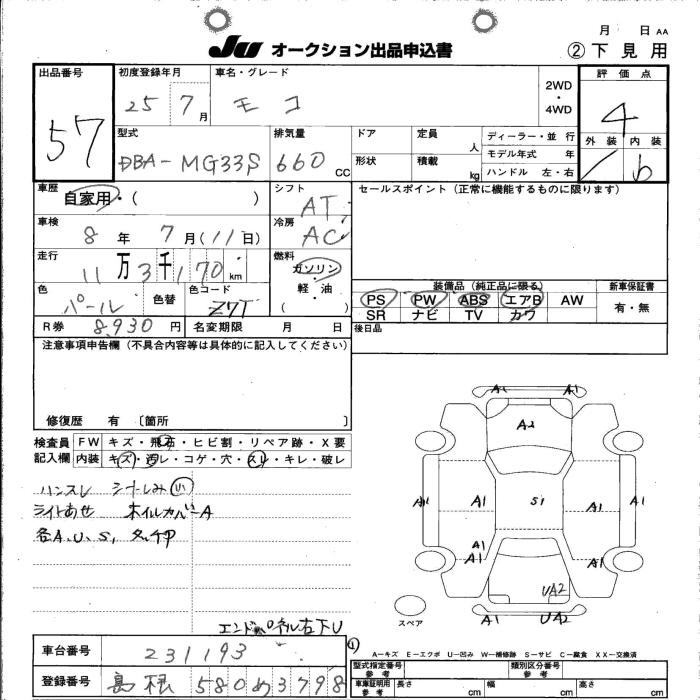 月 日 AA
JU オークション出品申込書
② 下見用
出品番号 57
初度登録年月 25 7月
車名・グレード モコ
2WD・4WD
評価点 4
外装 内装 b
型式 DBA-MG33S
排気量 660 CC
ドア 定員 人
形状 積載 kg
ディーラー・並行
モデル年式 年
ハンドル 左・右
車歴 自家用・( )
シフト AT
セールスポイント(正常に機能するものに限ります)
車検 8年 7月(11日)
冷房 AC
走行 11万3千170km
燃料 ガソリン・軽・油 ( )
色 パール 色替 色コード Z7T
装備品(純正品に限る) 新車保証書
PS PW ABS エアB AW 有・無
SR ナビ TV カワ
R券 8,930円 名変期限 月 日
後日品
注意事項申告欄(不具合内容等は具体的に記入してください)
修復歴 有〔箇所 〕
検査員記入欄 FW キズ・飛石・ヒビ割・リペア跡・X要
内装 キズ・汚レ・コゲ・穴・スレ・キレ・破レ
ハンスレ シートしみ 小
ライトあせ ホイルカバーA
各A.U.S.
エンドパネル右下U
A1 A1
A2
A1 A1 S1 A1 A1
A1
A1 A1
UA2
A1 UA2
スペア
A-キズ E-エクボ U-凹み W-補修跡 S-サビ C-腐食 XX-交換済
車台番号 231193
型式指定番号 参考 類別区分番号 参考
登録番号 島根 580 め 3798
車庫証明用 参考 長さ cm 幅 cm 高さ cm